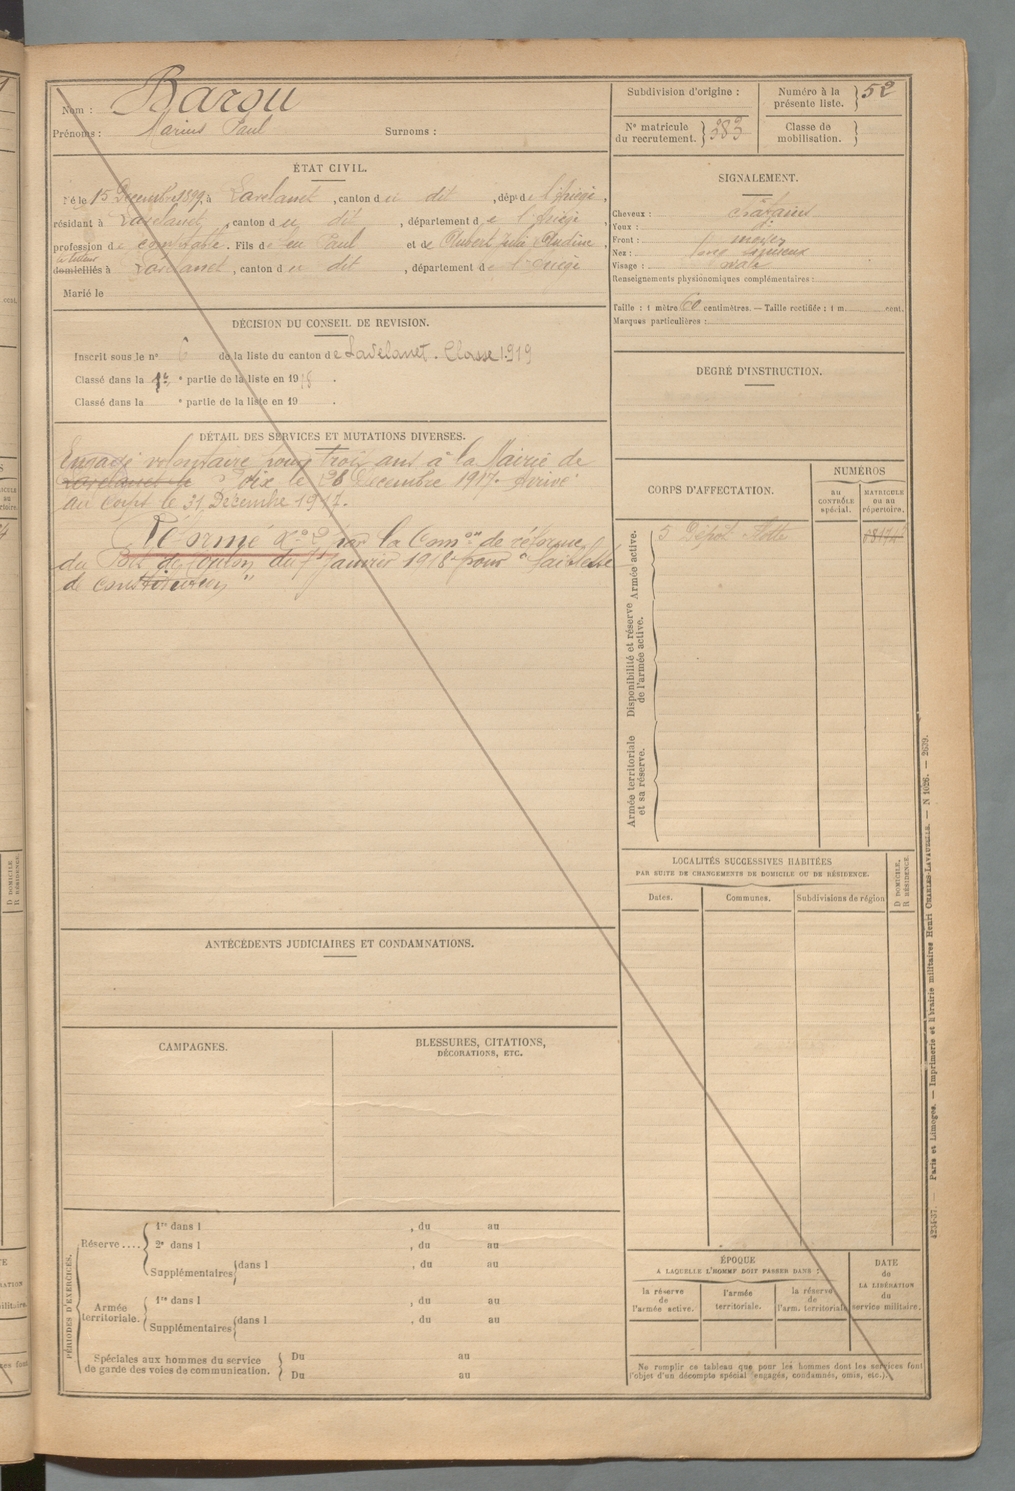 Nom : Barou
Prénoms : Marius Paul Surnoms :
ÉTAT CIVIL.
Né le 15 Décembre 1899, à Lavelanet, canton du dit, dép^t de l'Ariège,
résidant à Lavelanet, canton du dit, département de l'Ariège,
profession de comptable. Fils de feu Paul et de Rubert Julie Claudine,
domiciliés à Lavelanet, canton du dit, département de l'Ariège
Marié le
DÉCISION DU CONSEIL DE REVISION.
Inscrit sous le n° 6 de la liste du canton de Lavelanet. Classe 1919
Classé dans la 1re partie de la liste en 1918.
Classé dans la e partie de la liste en 19 .
DÉTAIL DES SERVICES ET MUTATIONS DIVERSES.
Engagé volontaire pour trois ans à la Mairie de
Lavelanet le Foix le 26 Décembre 1917. Arrivé
au corps le 31 Décembre 1917.
Réformé N° 2 par la Com^on de réforme
du de Toulon du Janvier 1918 pour "faiblesse
de constitution"
ANTÉCÉDENTS JUDICIAIRES ET CONDAMNATIONS.
CAMPAGNES.
BLESSURES, CITATIONS,
DÉCORATIONS, ETC.
PÉRIODES D'EXERCICES.
Réserve....
1re dans l , du au
2e dans l , du au
Supplémentaires dans l , du au
Armée territoriale.
1re dans l , du au
Supplémentaires dans l , du au
Spéciales aux hommes du service
de garde des voies de communication.
Du au
Du au
Subdivision d'origine :
Numéro à la
présente liste. 52
N° matricule
du recrutement. 383
Classe de
mobilisation.
SIGNALEMENT.
Cheveux : châtains
Yeux :
Front : moyen
Nez :
Visage : ovale
Renseignements physionomiques complémentaires :
Taille : 1 mètre 60 centimètres. — Taille rectifiée : 1 m. cent.
Marques particulières :
DEGRÉ D'INSTRUCTION.
CORPS D'AFFECTATION.
NUMÉROS
au
CONTRÔLE
spécial.
MATRICULE
ou au
répertoire.
Armée active.
5 Dépôt Flotte
Disponibilité et réserve
de l'armée active.
Armée territoriale
et sa réserve.
LOCALITÉS SUCCESSIVES HABITÉES
PAR SUITE DE CHANGEMENTS DE DOMICILE OU DE RÉSIDENCE.
D DOMICILE,
R RÉSIDENCE.
Dates. Communes. Subdivisions de région
ÉPOQUE
A LAQUELLE L'HOMME DOIT PASSER DANS :
la réserve
de
l'armée active.
l'armée
territoriale.
la réserve
de
l'arm. territoriale
DATE
de
LA LIBÉRATION
du
service militaire.
Ne remplir ce tableau que pour les hommes dont les services font
l'objet d'un décompte spécial (engagés, condamnés, omis, etc.).
4234-37. — Paris et Limoges. — Imprimerie et librairie militaires Henri CHARLES-LAVAUZELLE. — N 1026. — 2639.